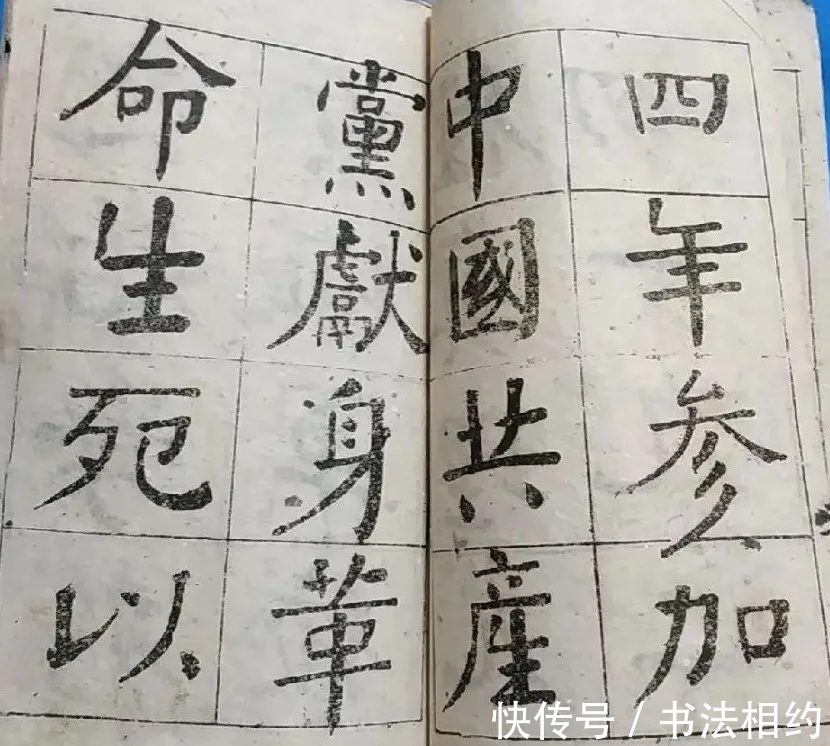 四年参加
中國共産
黨獻身革
命生死以
快传号 / 书法相约